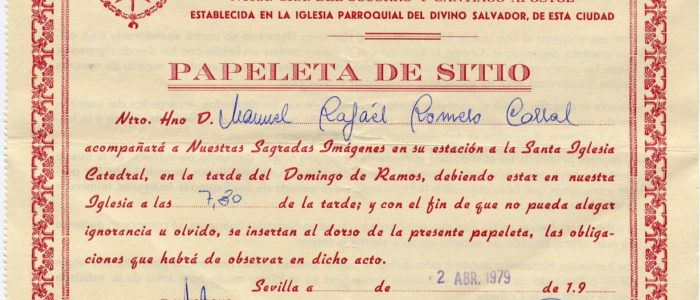 DEL SOCORRO Y SANTIAGO APOSTOL
ESTABLECIDA EN LA IGLESIA PARROQUIAL DEL DIVINO SALVADOR, DE ESTA CIUDAD
PAPELETA DE SITIO
Ntro. Hno D. Manuel Rafael Romero Corral
acompañará a Nuestras Sagradas Imágenes en su estación a la Santa Iglesia
Catedral, en la tarde del Domingo de Ramos, debiendo estar en nuestra
Iglesia a las 7,30 de la tarde; y con el fin de que no pueda alegar
ignorancia u olvido, se insertan al dorso de la presente papeleta, las obliga-
ciones que habrá de observar en dicho acto.
Sevilla a 2 ABR. 1979 de 1.9